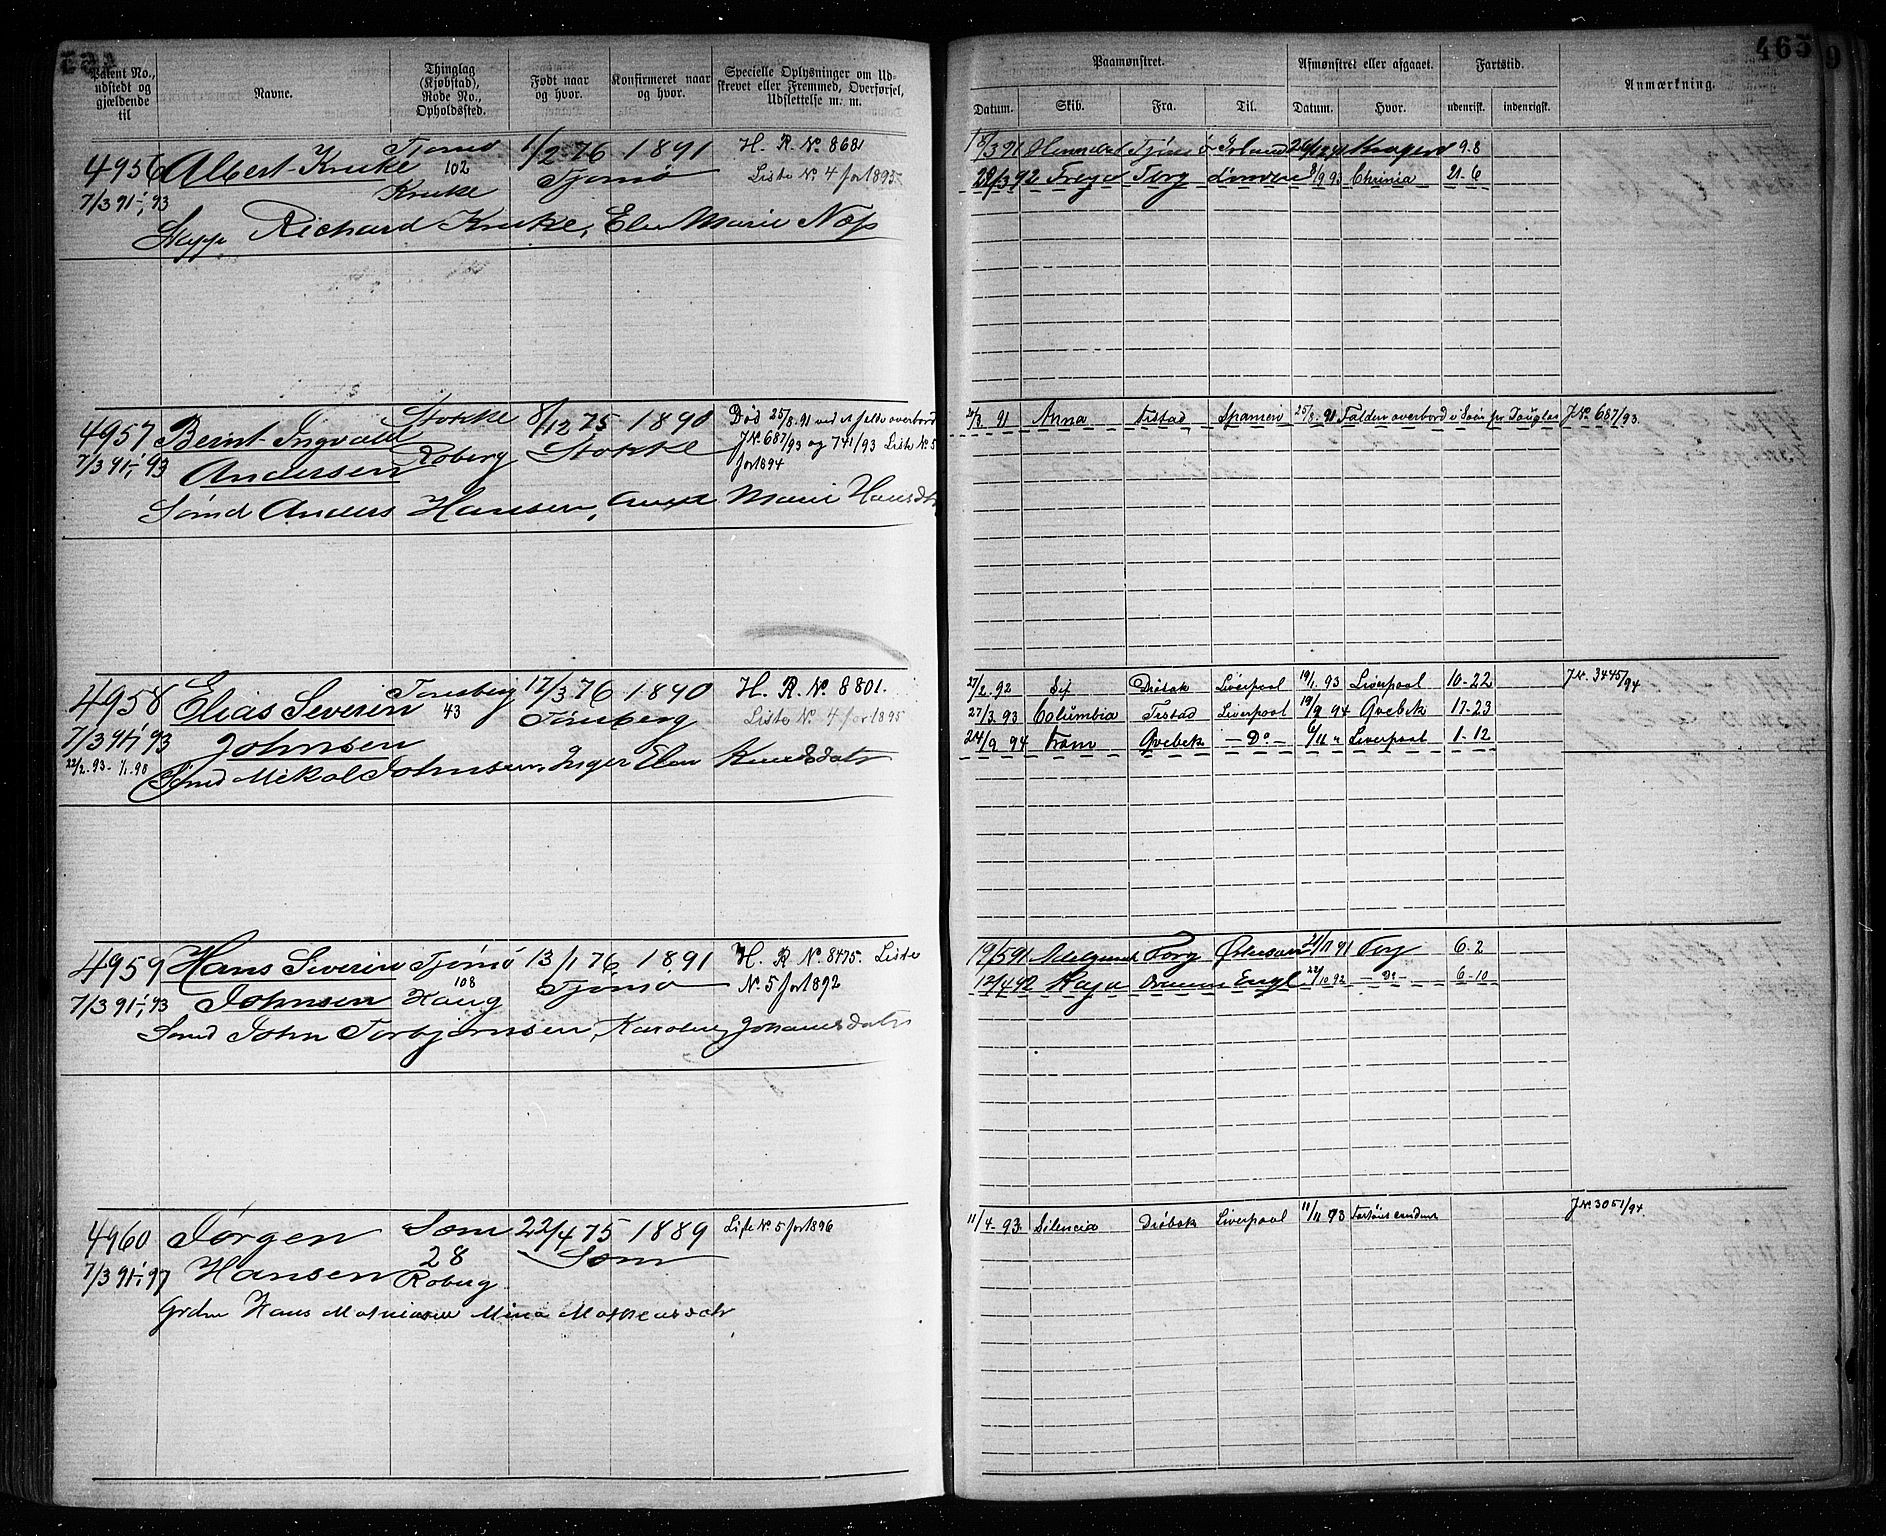 465
Patent No., udstedt og gjældende til
Navne.
Thinglag (Kjøbstad), Rode No., Opholdssted.
Født naar og hvor.
Konfirmeret naar og hvor.
Specielle Oplysninger om Udskrevet eller Fremmed, Overførsel, Udslettelse m. m.
Paamønstret.
Afmønstret eller afgaaet.
Fartstid.
Anmærkning.
Datum. Skib. Fra. Til. Datum. Hvor. udenrisk. indenrigsk.
4956 Albert Kruke Tjømø 1/2 76 1891 H. R. No. 8681
102 Tjømø Liste No. 4 for 1895
7/3 91-1/1 93 Kruke
Richard Kruke, Elen Marie Næss
/3 91 9.8
28/3 92 Freya Tbrg 8/9 93 Chrinia 21.6
4957 Bernt Ingvald Stokke 8/12 75 1890 Død 25/8.91 ved at falde overbord
7/3 91-1/1 93 Andersen Roberg Stokke J.No. 687/93 og 741/93 Liste No. 5
for 1894
Sønd Anders Hansen, Marie Hansdtr
91 Anna Tistad Spanien 25/8.91 Falden overbord J.No. 687/93.
4958 Elias Severin Tønsberg 17/3 76 1890 H. R. No. 8801.
43 Tønsberg Liste No. 4 for 1895
7/3 91-1/1 93 Johnsen
22/2.93-1/1.98 Sønd Mikal Johnsen, Inger Elen Knudsdatr
27/2. 92 Sif Drøbak Liverpool 19/1 93 Liverpool 10-22 J.No. 3445/94
27/3 93 Columbia Tistad Liverpool 19/9 94 Qvebek 17-23
24/9 94 Fram Qvebek -Do- 6/11 " Liverpool 1-12
4959 Hans Severin Tjømø 13/1 76 1891 H. R No. 8475. Liste
7/3 91-1/1 93 Johnsen 108 Haug Tjømø No. 5 for 1892
Sønd John Torbjørnsen, Karoline Johannesdatr
19/5 91 Tbrg 21/11 91 Tbrg 6-2
12/4 92 Haya Engl 22/10 92 -Do- 6-10
4960 Jørgen Sem 22/4 75 1889 Liste No. 5 for 1896
28 Sem
7/3 91-1/1 97 Hansen Roberg
Grdm Hans Mathiasen Mina Matheasdatr
11/4-93 Silencia Drøbak Liverpool 11/11 93 J.No. 3051/94.